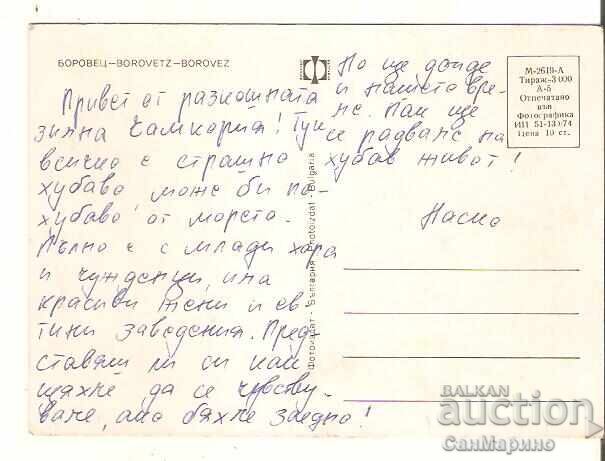 БОРОВЕЦ—BOROVETZ—BOROVEZ
Привет от разкошната
зимна Чамкория! Тук
всичко е страшно
хубаво, може би по-
хубаво от морето.
Пълно е с млади хора
и чужденци, има
красиви жени и ев-
тини заведения. Пред-
ставяш ли си как
щяхме да се чувству-
ваме, ако бяхме заедно!
Но ще дойде
и нашето вре-
ме. Пак ще
се радваме на
хубав живот!
Наско
Фотоиздат - България - Photoizdat - Bulgaria
М-2619-А
Тираж-3 000
А-6
Отпечатано
във
Фотографика
ИП 51-13/74
Цена 10 ст.
BALKAN
auction
СанМарино